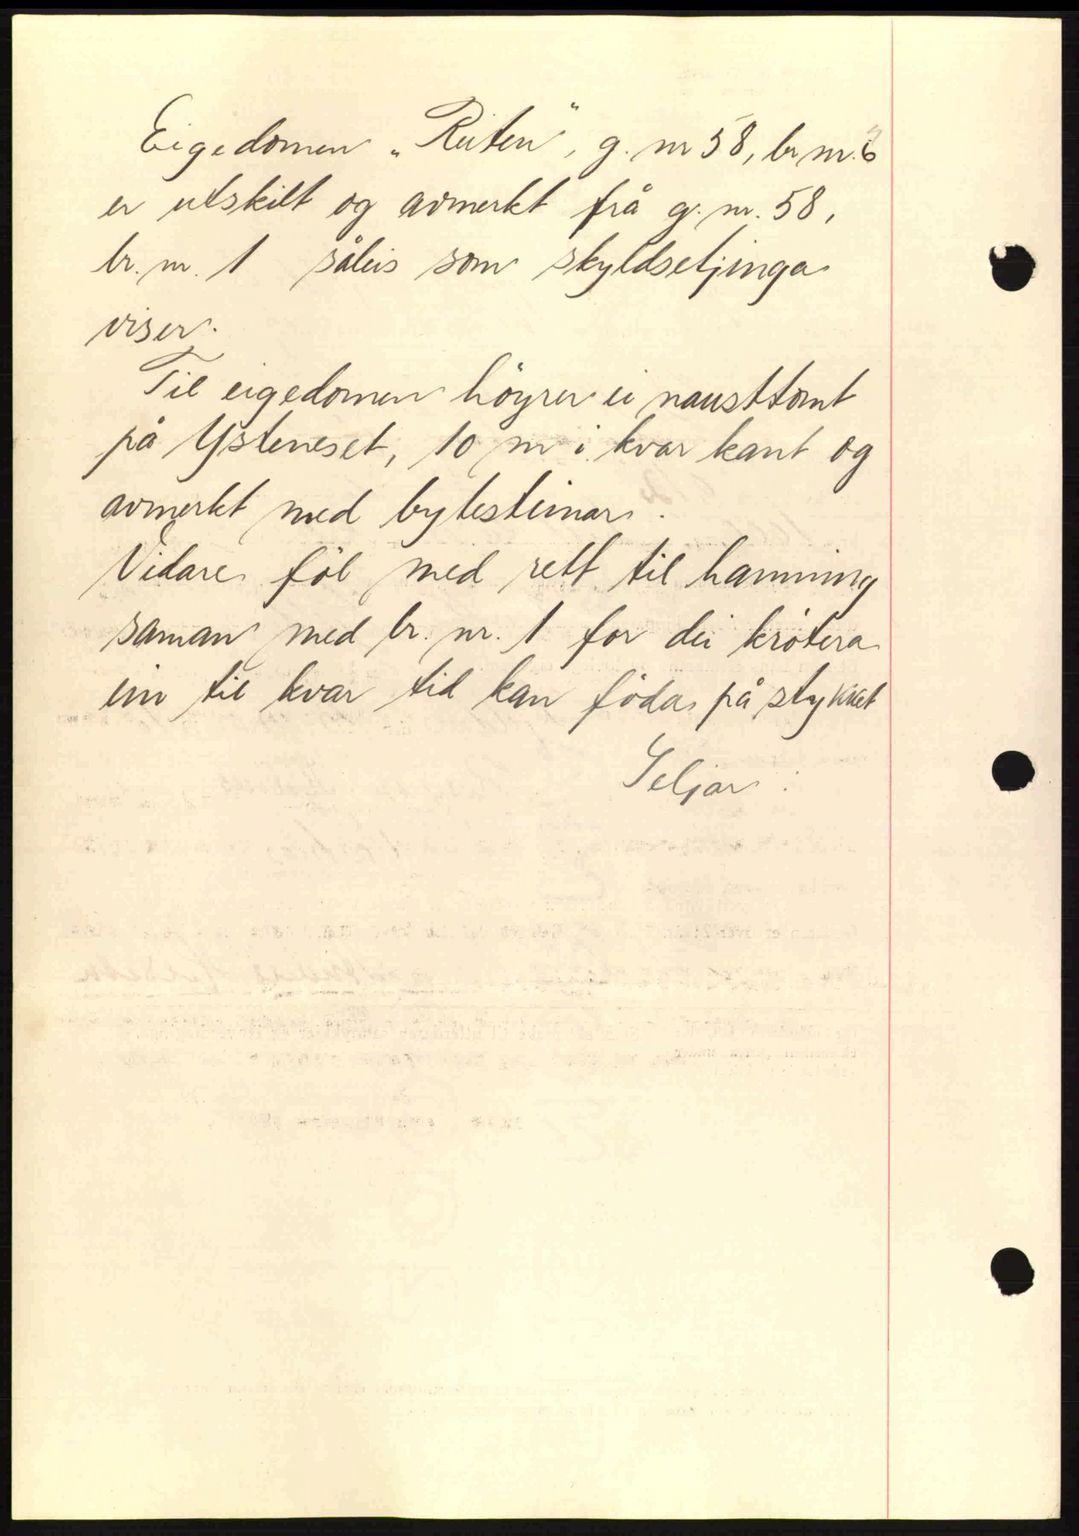 Eigedomen „Reiten“, g. nr 58, br nr. 6
er utskilt og avmerkt frå g. nr. 58,
br. nr. 1 såleis som skyldsetjinga
viser.
Til eigedomen höyrer ei nausttomt
på Ysteneset, 10 m i kvar kant og
avmerkt med bytesteinar.
Vidare föl med rett til hamning
saman med br. nr. 1 for dei krötera
ein til kvar tid kan föda på stykket
Seljar :